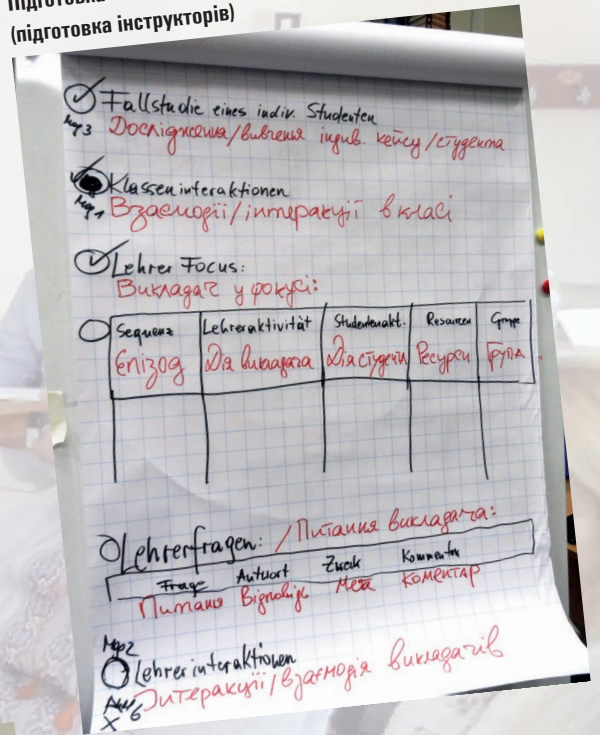 Підготовка
(підготовка інструкторів)
Fallstudie eines indiv. Studenten
Дослідження/вивчення індив. кейсу/студента
Klasseninteraktionen
Взаємодії/інтеракції в класі
Lehrer Focus:
Викладач у фокусі:
Sequenz Lehreraktivität Studentenakt. Resourcen Gruppe
Епізод Дія викладача Дія студента Ресурси Група
Lehrerfragen: /Питання викладача:
Frage Antwort Zweck Kommentar
Питання Відповідь Мета коментар
Lehrerinteraktionen
Інтеракції/взаємодія викладачів